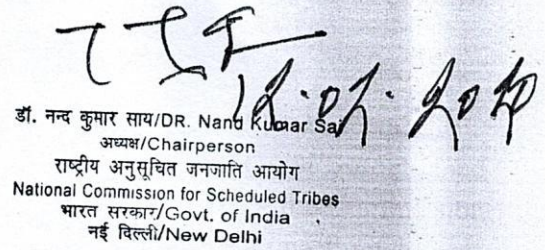 डॉ. नन्द कुमार साय/DR. Nand Kumar Sai
अध्यक्ष/Chairperson
राष्ट्रीय अनुसूचित जनजाति आयोग
National Commission for Scheduled Tribes
भारत सरकार/Govt. of India
नई दिल्ली/New Delhi